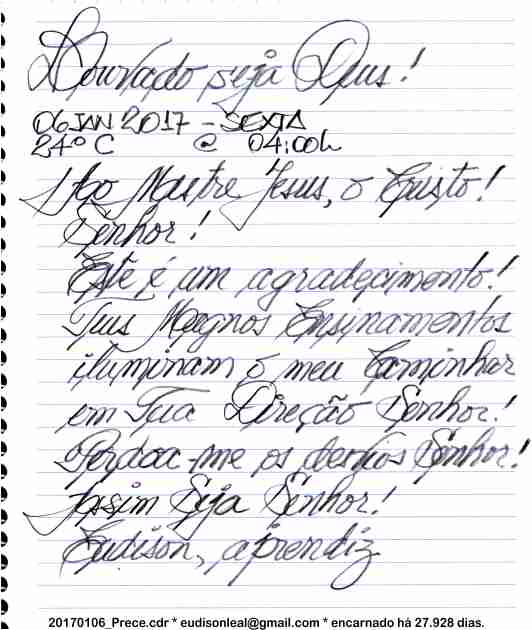 Louvado seja Deus!
06 JAN 2017 - SEXTA
24º C @ 04:00h
Ao Mestre Jesus, o Cristo!
Senhor!
Este é um agradecimento!
Teus Magnos Ensinamentos
iluminam o meu Caminhar
em Tua Direção Senhor!
Perdoa-me os desvios Senhor!
Assim Seja Senhor!
Eudison, aprendiz
20170106_Prece.cdr * eudisonleal@gmail.com * encarnado há 27.928 dias.